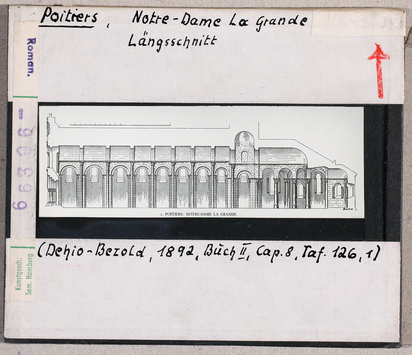 Poitiers, Notre-Dame La Grande
Längsschnitt
Roman.
1. POITIERS: NOTRE-DAME LA GRANDE.
Kunstgesch.
Sem. Hamburg
(Dehio-Bezold, 1892, Buch II, Cap. 8, Taf. 126, 1)